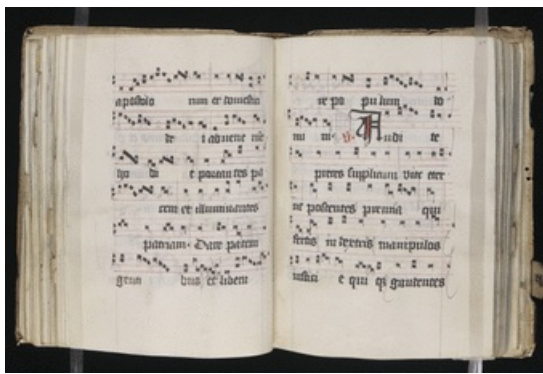 apostolo nun et domestici
de i aduene ue
ho di e portantes pa
cem et illuminantes
patriam Dare pacem
genti bus et liberi
re po pulum do
mi ni v Audi te
preces supplicum vite eter
ne poscentes premia qui
fertis in dextris manipulos
iusticie e qui qz gaudentes